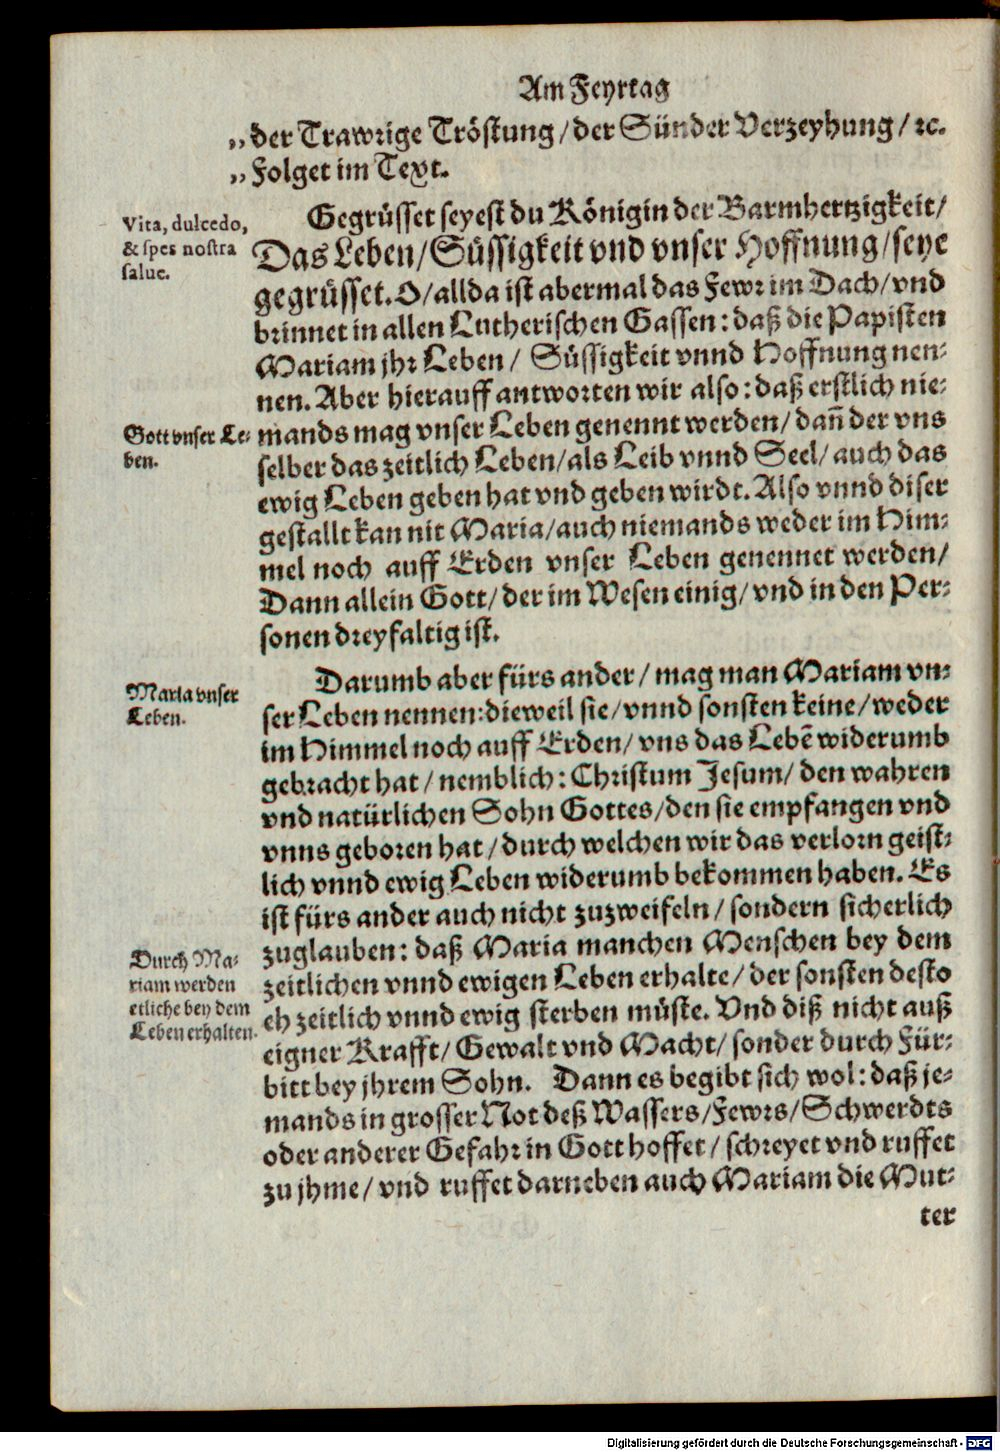 Am Feyrtag
„der Trawrige Tröstung/der Sünder Verzeyhung/ꝛc.
„Folget im Text.
Vita, dulcedo,
& spes nostra
salue.
Gegrüsset seyest du Königin der Barmhertzigkeit/
Das Leben/Süssigkeit vnd vnser Hoffnung/seye
gegrüsset. O/allda ist abermal das Fewr im Dach/vnd
brinnet in allen Lutherischen Gassen: daß die Papisten
Mariam jhr Leben/ Süssigkeit vnnd Hoffnung nen-
nen. Aber hierauff antworten wir also: daß erstlich nie-
Gott vnser Le-
ben.
mands mag vnser Leben genennt werden/ dañ der vns
selber das zeitlich Leben/als Leib vnnd Seel/ auch das
ewig Leben geben hat vnd geben wirdt. Also vnnd diser
gestallt kan nit Maria/auch niemands weder im Him-
mel noch auff Erden vnser Leben genennet werden/
Dann allein Gott/ der im Wesen einig/ vnd in den Per-
sonen dreyfaltig ist.
Maria vnser
Leben.
Darumb aber fürs ander/ mag man Mariam vn-
ser Leben nennen: dieweil sie/ vnnd sonsten keine/weder
im Himmel noch auff Erden/ vns das Lebē widerumb
gebracht hat/ nemblich: Christum Jesum/ den wahren
vnd natürlichen Sohn Gottes/den sie empfangen vnd
vnns geboren hat/durch welchen wir das verlorn geist-
lich vnnd ewig Leben widerumb bekommen haben. Es
ist fürs ander auch nicht zuzweifeln/ sondern sicherlich
Durch Ma-
riam werden
etliche bey dem
Leben erhalten.
zuglauben: daß Maria manchen Menschen bey dem
zeitlichen vnnd ewigen Leben erhalte/ der sonsten desto
eh zeitlich vnnd ewig sterben müste. Vnd diß nicht auß
eigner Krafft/ Gewalt vnd Macht/ sonder durch Für-
bitt bey jhrem Sohn. Dann es begibt sich wol: daß je-
mands in grosser Not deß Wassers/Fewrs/Schwerdts
oder anderer Gefahr in Gott hoffet/ schreyet vnd ruffet
zu jhme/ vnd ruffet darneben auch Mariam die Mut-
ter
Digitalisierung gefördert durch die Deutsche Forschungsgemeinschaft - DFG